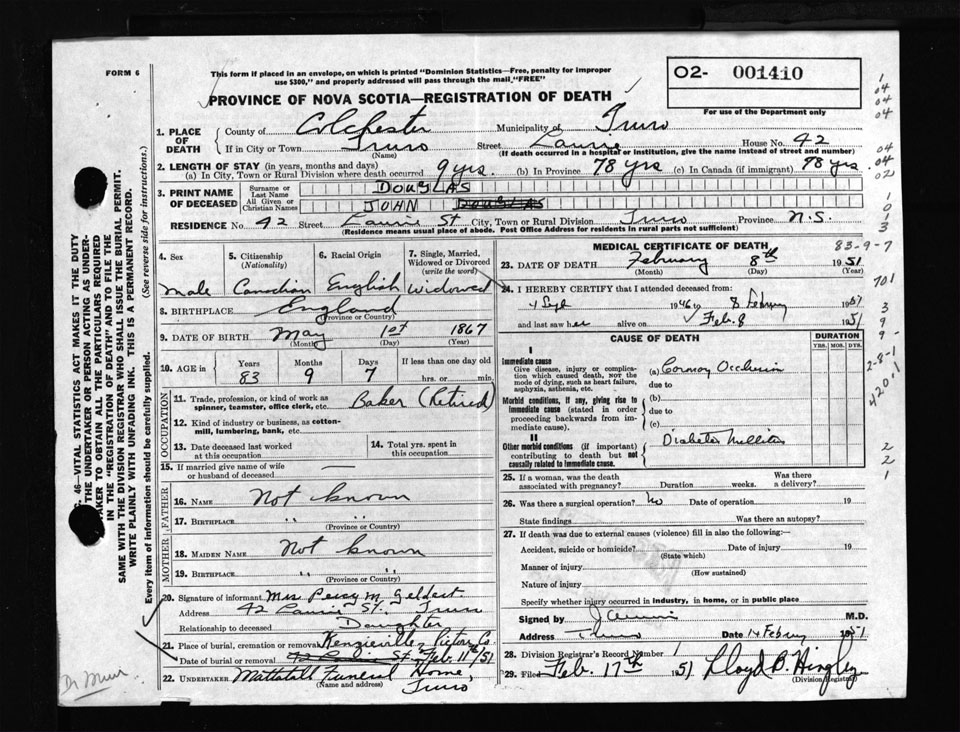 FORM 6
This form if placed in an envelope, on which is printed "Dominion Statistics—Free, penalty for improper
use $300," and properly addressed will pass through the mail "FREE"
PROVINCE OF NOVA SCOTIA—REGISTRATION OF DEATH
02- 001410
For use of the Department only
1. PLACE OF DEATH County of Colchester Municipality of Truro
If in City or Town Truro Street Laurie House No. 42
(Name) (If death occurred in a hospital or institution, give the name instead of street and number)
2. LENGTH OF STAY (in years, months and days)
(a) In City, Town or Rural Division where death occurred 9 yrs. (b) In Province 78 yrs (c) In Canada (if immigrant) 78 yrs.
3. PRINT NAME OF DECEASED
Surname or Last Name DOUGLAS
All Given or Christian Names JOHN DOUGLAS
RESIDENCE No. 42 Street Laurie St City, Town or Rural Division Truro Province N.S.
(Residence means usual place of abode. Post Office Address for residents in rural parts not sufficient)
4. Sex Male
5. Citizenship (Nationality) Canadian
6. Racial Origin English
7. Single, Married, Widowed or Divorced (write the word) Widowed
8. BIRTHPLACE England
(Province or Country)
9. DATE OF BIRTH May 1st 1867
(Month) (Day) (Year)
10. AGE in Years Months Days If less than one day old
83 9 7 hrs. or min.
OCCUPATION
11. Trade, profession, or kind of work as spinner, teamster, office clerk, etc. Baker (Retired)
12. Kind of industry or business, as cotton-mill, lumbering, bank, etc.
13. Date deceased last worked at this occupation
14. Total yrs. spent in this occupation
15. If married give name of wife or husband of deceased —
FATHER
16. NAME Not known
17. BIRTHPLACE " "
(Province or Country)
MOTHER
18. MAIDEN NAME Not known
19. BIRTHPLACE " "
(Province or Country)
20. Signature of informant Mrs Percy M. Geldert
Address 42 Laurie St. Truro
Relationship to deceased Daughter
21. Place of burial, cremation or removal Kenzieville, Pictou Co.
Date of burial or removal 42 Laurie St. Feb. 11th/51
22. UNDERTAKER Mattatall Funeral Home,
(Name and address) Truro
MEDICAL CERTIFICATE OF DEATH
83-9-7
23. DATE OF DEATH February 8th 1951
(Month) (Day) (Year)
24. I HEREBY CERTIFY that I attended deceased from:
1946 to 8 February 1951
and last saw her alive on Feb. 8 1951
CAUSE OF DEATH
DURATION
YRS. MOS. DYS.
I
Immediate cause
Give disease, injury or complication which caused death, NOT the mode of dying, such as heart failure, asphyxia, asthenia, etc.
(a)
due to
Morbid conditions, if any, giving rise to immediate cause (stated in order proceeding backwards from immediate cause).
(b)
due to
(c)
II
Other morbid conditions (if important) contributing to death but not causally related to immediate cause.
Diabetes Mellitus
25. If a woman, was the death associated with pregnancy? Duration weeks. Was there a delivery?
26. Was there a surgical operation? No Date of operation 19
State findings Was there an autopsy?
27. If death was due to external causes (violence) fill in also the following:—
Accident, suicide or homicide? Date of injury 19
(State which)
Manner of injury
(How sustained)
Nature of injury
Specify whether injury occurred in industry, in home, or in public place
Signed by M.D.
Address Truro Date 14 February 1951
28. Division Registrar's Record Number 1
29. Filed Feb. 17th 1951 Lloyd B. Hingley
(Division Registrar)
46—VITAL STATISTICS ACT MAKES IT THE DUTY
THE UNDERTAKER OR PERSON ACTING AS UNDER-
TAKER TO OBTAIN ALL THE PARTICULARS REQUIRED
IN THE "REGISTRATION OF DEATH" AND TO FILE THE
SAME WITH THE DIVISION REGISTRAR WHO SHALL ISSUE THE BURIAL PERMIT.
WRITE PLAINLY WITH UNFADING INK. THIS IS A PERMANENT RECORD.
Every item of information should be carefully supplied. (See reverse side for instructions.)
1
04
04
04
04
02
1
0
3
701
3
9
9
2-8-1
420.1
2
2
1